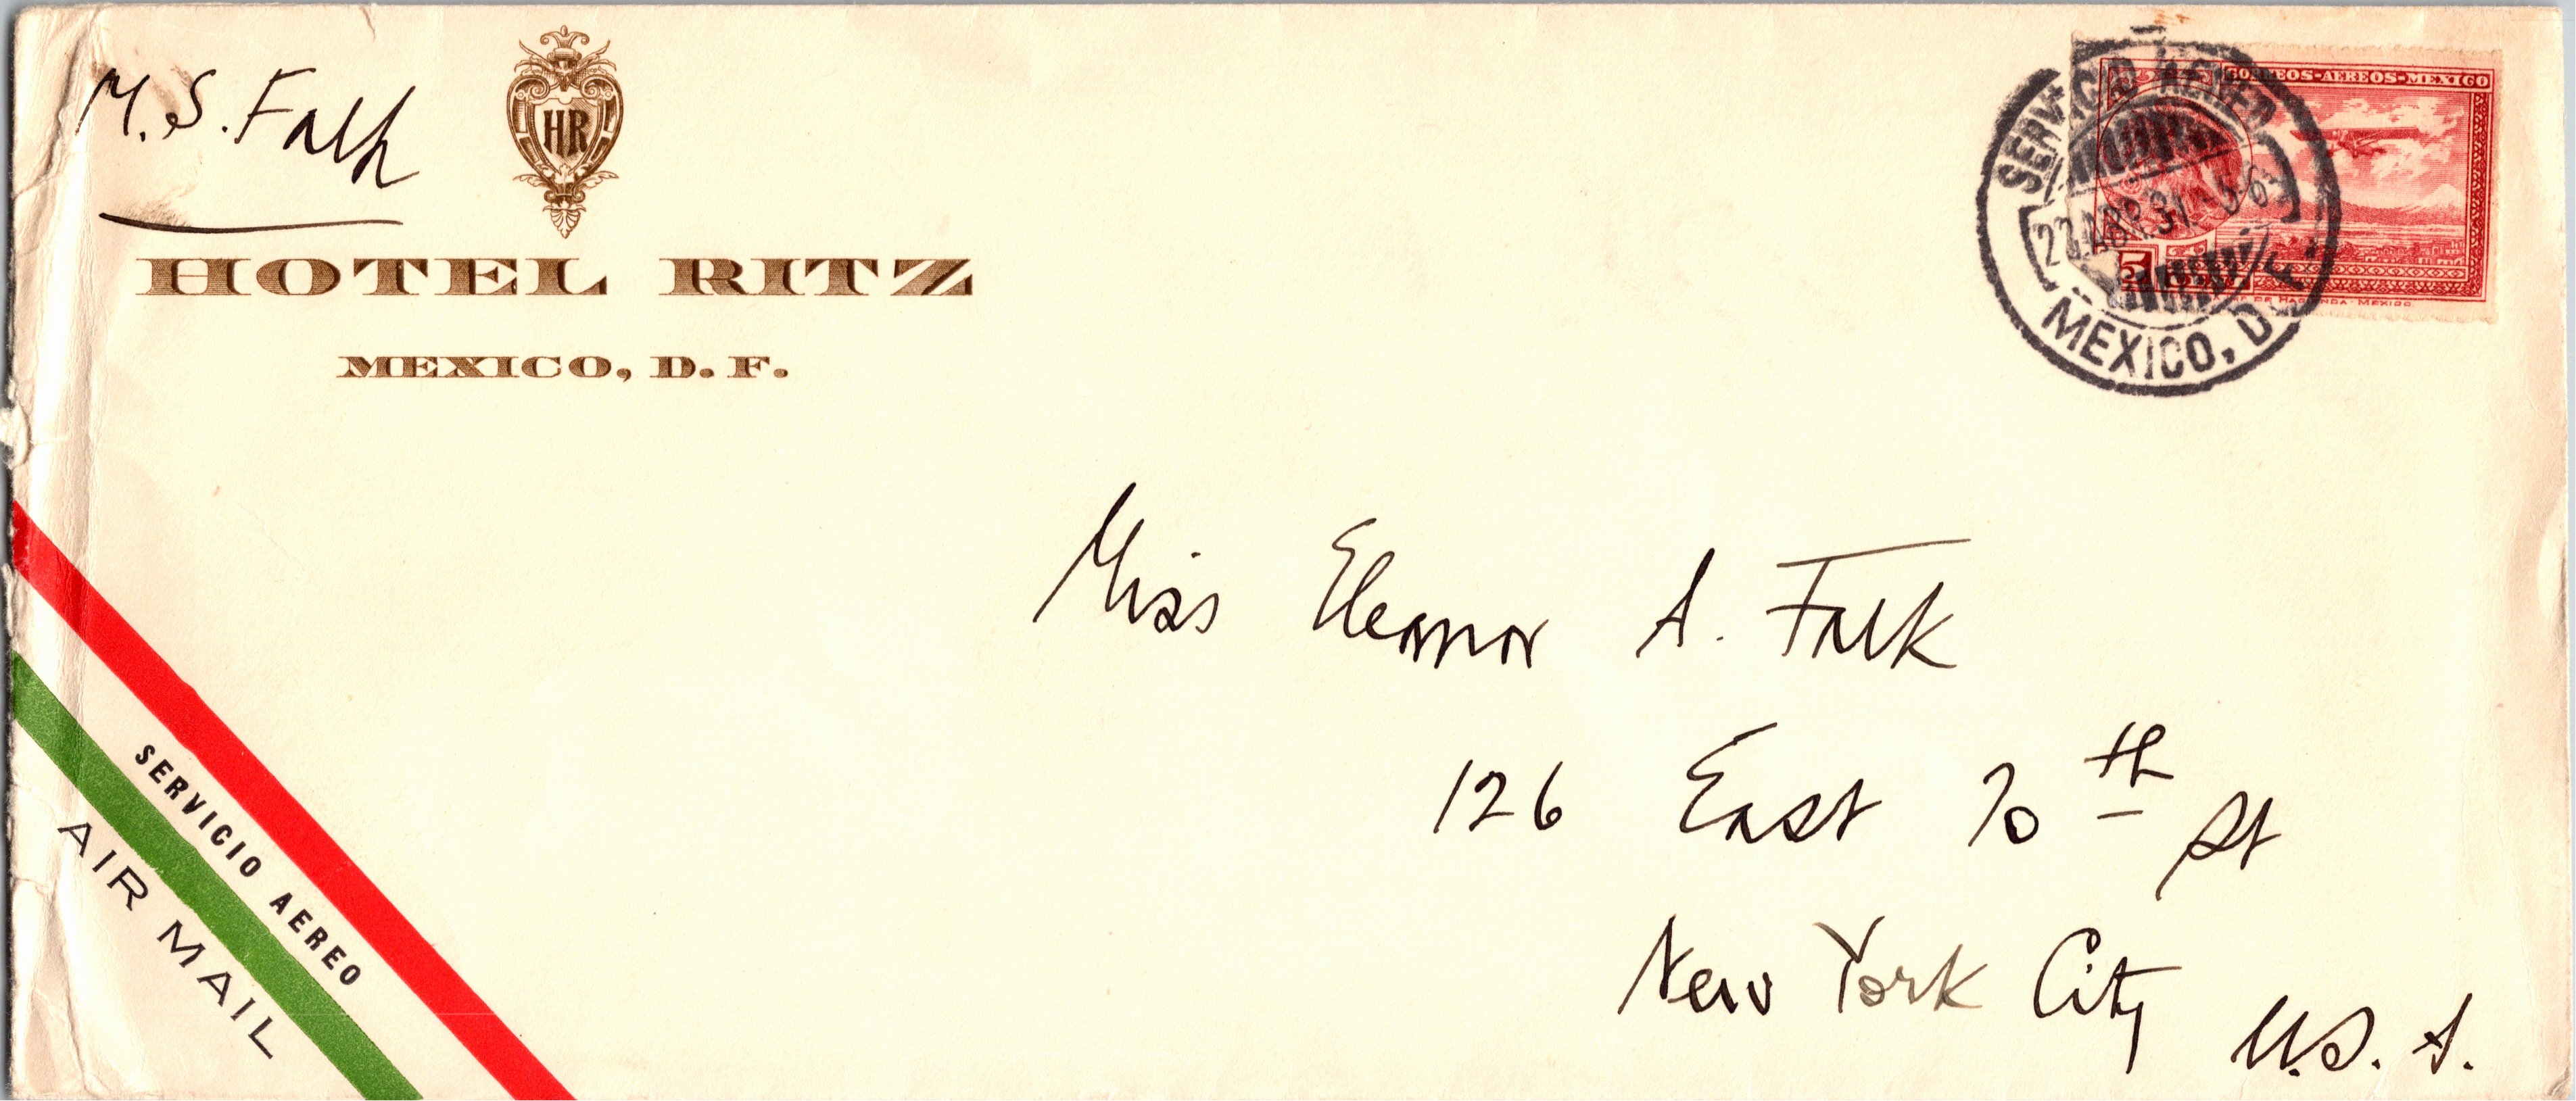 M. S. Falk
HR
HOTEL RITZ
MEXICO, D. F.
SERVICIO AEREO
22 ABR. 31
MEXICO, D. F.
CORREOS-AEREOS-MEXICO
DE HACIENDA-MEXICO
Miss Eleanor A. Falk
126 East 70th St
New York City
U.S.A.
SERVICIO AEREO
AIR MAIL